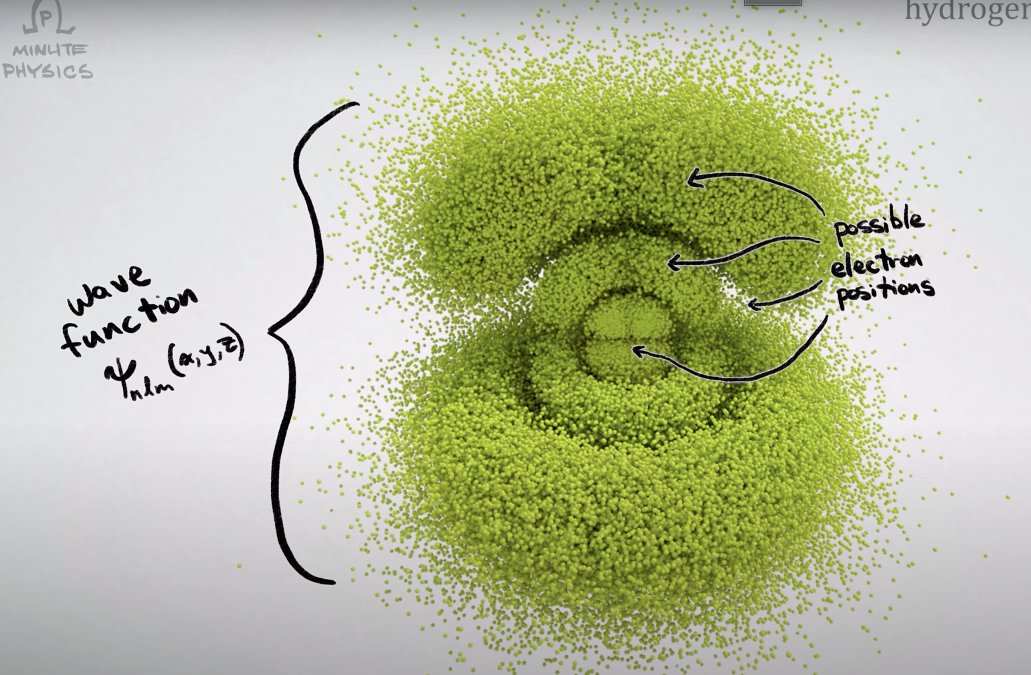 MINUTE
PHYSICS
hydroger
wave
function
ψnlm (x,y,z)
possible
electron
positions